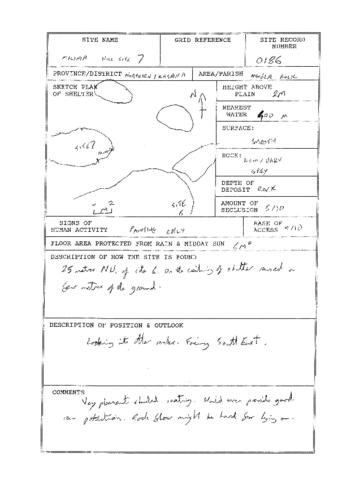 SITE NAME
GRID REFERENCE
SITE RECORD
NUMBER
HILL SITE 7
0186
PROVINCE/DISTRICT NORTHERN / KASAMA
AREA/PARISH
SKETCH PLAN
OF SHELTER
N
HEIGHT ABOVE
PLAIN 2M
NEAREST
WATER 600 M
SURFACE:
SMOOTH
ROCK:
GREY
DEPTH OF
DEPOSIT ROCK
AMOUNT OF
SECLUSION 5/10
SIGNS OF
HUMAN ACTIVITY PAINTING ONLY
EASE OF
ACCESS /10
FLOOR AREA PROTECTED FROM RAIN & MIDDAY SUN 6M²
DESCRIPTION OF HOW THE SITE IS FOUND
25 metres NW. of site 6 on the ceiling of shelter raised a
few metres of the ground.
DESCRIPTION OF POSITION & OUTLOOK
Looking into other rocks. Facing South East.
COMMENTS
Very pleasant shaded seating. Would even provide good
rain protection. Rock floor might be hard for lying on.